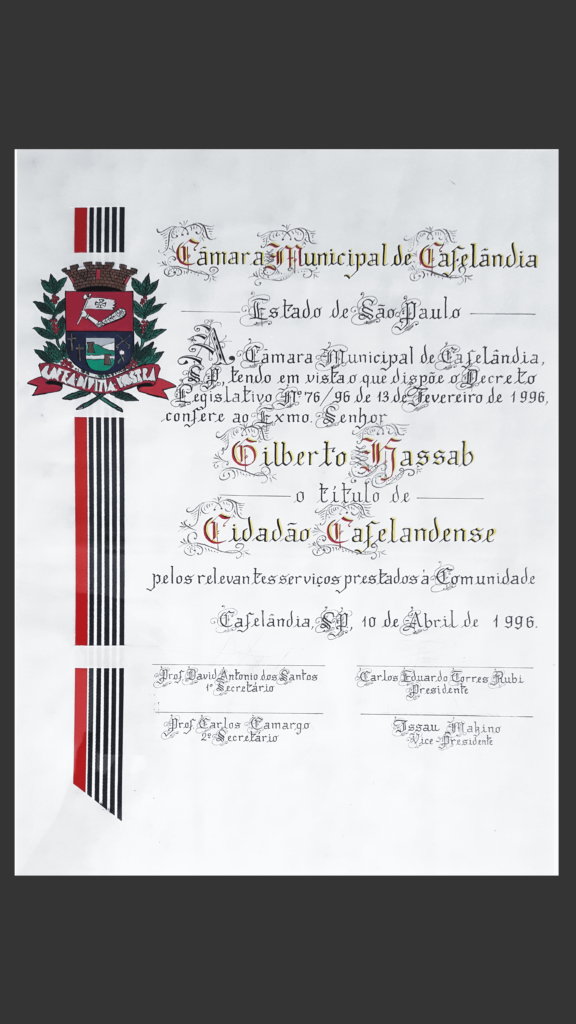 Câmara Municipal de Cafelândia
Estado de São Paulo
A Câmara Municipal de Cafelândia,
SP, tendo em vista o que dispõe o Decreto
Legislativo Nº 76/96 de 13 de Fevereiro de 1996,
confere ao Exmo. Senhor
Gilberto Hassab
o título de
Cidadão Cafelandense
pelos relevantes serviços prestados à Comunidade
Cafelândia, SP, 10 de Abril de 1996.
Prof. David Antonio dos Santos
1º Secretário
Carlos Eduardo Torres Rubi
Presidente
Prof. Carlos Camargo
2º Secretário
Issau Makino
Vice-Presidente